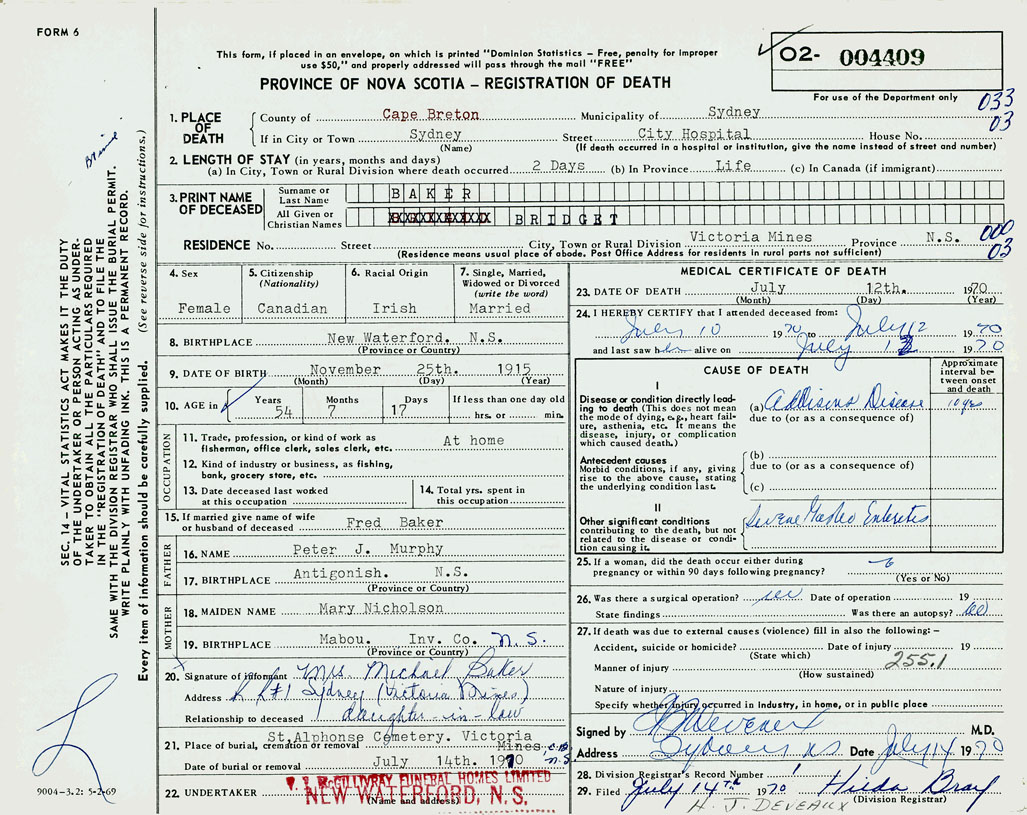 FORM 6
This form, if placed in an envelope, on which is printed "Dominion Statistics – Free, penalty for improper
use $50," and properly addressed will pass through the mail "FREE"
PROVINCE OF NOVA SCOTIA – REGISTRATION OF DEATH
O2- 004409
For use of the Department only
033
03
1. PLACE OF DEATH
County of Cape Breton Municipality of Sydney
If in City or Town Sydney Street City Hospital House No.
(Name) (If death occurred in a hospital or institution, give the name instead of street and number)
2. LENGTH OF STAY (in years, months and days)
(a) In City, Town or Rural Division where death occurred 2 Days (b) In Province Life (c) In Canada (if immigrant)
3. PRINT NAME OF DECEASED
Surname or Last Name BAKER
All Given or Christian Names BRIDGET
RESIDENCE No. Street City, Town or Rural Division Victoria Mines Province N.S.
000
03
(Residence means usual place of abode. Post Office Address for residents in rural parts not sufficient)
4. Sex
Female
5. Citizenship
(Nationality)
Canadian
6. Racial Origin
Irish
7. Single, Married, Widowed or Divorced
(write the word)
Married
8. BIRTHPLACE New Waterford. N.S.
(Province or Country)
9. DATE OF BIRTH November 25th. 1915
(Month) (Day) (Year)
10. AGE in
Years 54
Months 7
Days 17
If less than one day old
hrs. or min.
OCCUPATION
11. Trade, profession, or kind of work as
fisherman, office clerk, sales clerk, etc. At home
12. Kind of industry or business, as fishing,
bank, grocery store, etc.
13. Date deceased last worked
at this occupation
14. Total yrs. spent in
this occupation
15. If married give name of wife
or husband of deceased Fred Baker
FATHER
16. NAME Peter J. Murphy
17. BIRTHPLACE Antigonish. N.S.
(Province or Country)
MOTHER
18. MAIDEN NAME Mary Nicholson
19. BIRTHPLACE Mabou. Inv. Co. N.S.
(Province or Country)
20. Signature of informant Mrs Michael Baker
Address R R#1 Sydney (Victoria Mines)
Relationship to deceased daughter-in-law
21. Place of burial, cremation or removal St,Alphonse Cemetery. Victoria
Mines, C.B.
N.S.
Date of burial or removal July 14th. 1970
22. UNDERTAKER
V. J. McGILLIVRAY FUNERAL HOMES LIMITED
NEW WATERFORD, N. S.
(Name and address)
MEDICAL CERTIFICATE OF DEATH
23. DATE OF DEATH July 12th. 1970
(Month) (Day) (Year)
24. I HEREBY CERTIFY that I attended deceased from:
July 10 1970 to July 12 1970
and last saw her alive on July 12 1970
CAUSE OF DEATH
Approximate interval be-
tween onset
and death
I
Disease or condition directly lead-
ing to death (This does not mean
the mode of dying, e.g., heart fail-
ure, asthenia, etc. It means the
disease, injury, or complication
which caused death.)
(a) Addisons Disease 10 yrs
due to (or as a consequence of)
Antecedent causes
Morbid conditions, if any, giving
rise to the above cause, stating
the underlying condition last.
(b)
due to (or as a consequence of)
(c)
II
Other significant conditions
contributing to the death, but not
related to the disease or condi-
tion causing it.
Severe Gastro Enteritis
25. If a woman, did the death occur either during
pregnancy or within 90 days following pregnancy?
(Yes or No)
26. Was there a surgical operation? Date of operation 19
State findings Was there an autopsy?
27. If death was due to external causes (violence) fill in also the following: –
Accident, suicide or homicide? Date of injury 19
(State which)
255.1
Manner of injury
(How sustained)
Nature of injury
Specify whether injury occurred in Industry, in home, or in public place
Signed by M.D.
Address Sydney N.S. Date July 14 1970
28. Division Registrar's Record Number
29. Filed July 14th 1970 Hilda Bray
(Division Registrar)
H. J. DEVEAUX
SEC. 14 – VITAL STATISTICS ACT MAKES IT THE DUTY
OF THE UNDERTAKER OR PERSON ACTING AS UNDER-
TAKER TO OBTAIN ALL THE PARTICULARS REQUIRED
IN THE "REGISTRATION OF DEATH" AND TO FILE THE
SAME WITH THE DIVISION REGISTRAR WHO SHALL ISSUE THE BURIAL PERMIT.
WRITE PLAINLY WITH UNFADING INK. THIS IS A PERMANENT RECORD.
Every item of information should be carefully supplied. (See reverse side for instructions.)
9004-3.2: 5-2-69